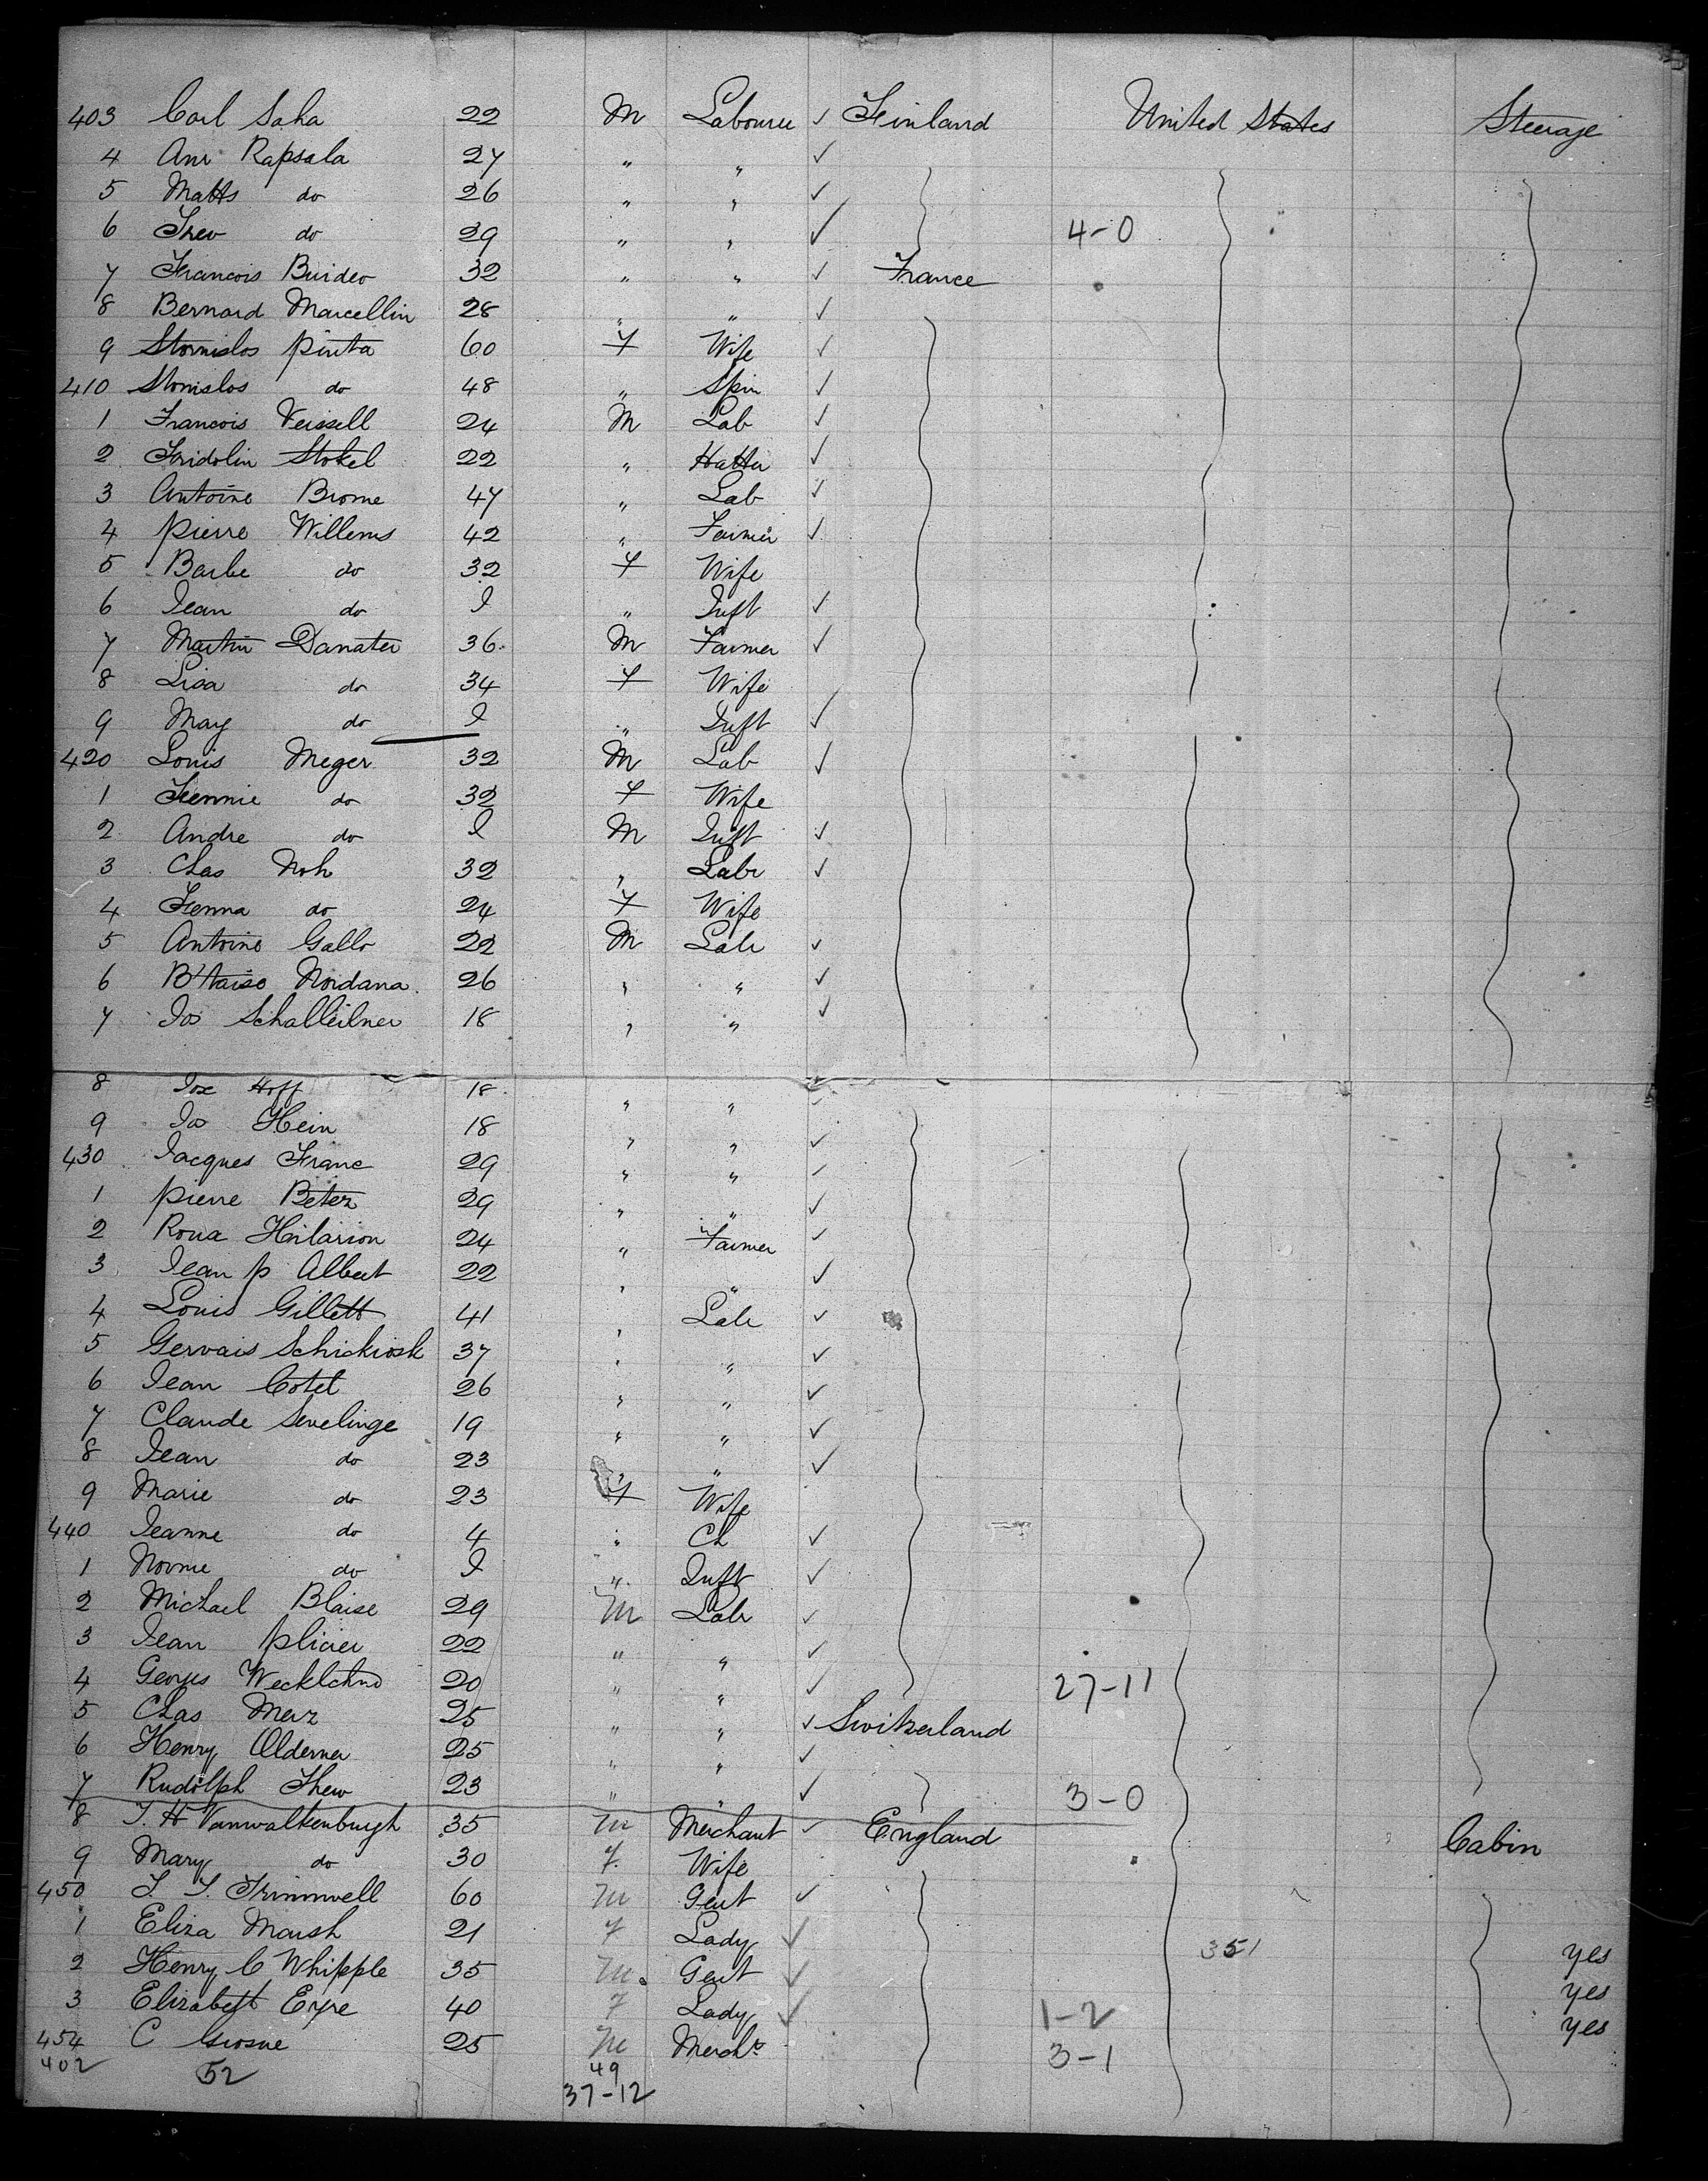 403 Carl Saha 22 M Labourer ✓ Finland United States Steerage
4 Anr Rapsala 27 " " ✓
5 Matts do 26 " " ✓
6 do 29 " " ✓ 4-0
7 Francois Buideo 32 " " ✓ France
8 Bernard Marcellin 28 " " ✓
9 Stornislos pinta 60 F Wife ✓
410 Stonislos do 48 " Spin ✓
1 Francois Veissell 24 M Lab ✓
2 Fridolin Stokel 22 " Hatter ✓
3 Antoine Brome 47 " Lab ✓
4 pierre Willems 42 " Farmer ✓
5 Barbe do 32 F Wife
6 Jean do I " Inft ✓
7 Martin Danater 36 M Farmer ✓
8 Lisa do 34 F Wife
9 May do I " Inft ✓
420 Louis Meger 32 M Lab ✓
1 do 32 F Wife
2 Andre do I M Inft ✓
3 Chas Noh 32 " Labr ✓
4 do 24 F Wife
5 Antoine Gallo 22 M Labr ✓
6 Nordana 26 " " ✓
7 Jos Schableilner 18 " " ✓
8 Jos Hoff 18 " " ✓
9 Jos Hein 18 " " ✓
430 Jacques Franc 29 " " ✓
1 pierre Beter 29 " " ✓
2 Roua Hilarion 24 " Farmer ✓
3 Jean p Albert 22 " " ✓
4 Louis Gillett 41 " Labr ✓
5 Gervais Schickiosk 37 " " ✓
6 Jean Cotet 26 " " ✓
7 Claude Sevelinge 19 " " ✓
8 Jean do 23 " " ✓
9 Marie do 23 F Wife
440 Jeanne do 4 " Ch ✓
1 do I " Inft ✓
2 Michael Blaise 29 M Labr ✓
3 Jean plicier 22 " " ✓
4 Georges 20 " " ✓ 27-11
5 Chas Merz 25 " " ✓ Switzerland
6 Henry Olderner 25 " " ✓
7 Rudolph 23 " " ✓ 3-0
8 J. H Vanwalkenburgh 35 M Merchant ✓ England Cabin
9 Mary do 30 F. Wife
450 60 M Gent ✓
1 Eliza Marsh 21 F Lady ✓ 351 yes
2 Henry C Whipple 35 M. Gent ✓ yes
3 Elizabeth Eyre 40 F Lady ✓ 1-2 yes
454 C Grosne 25 M Mercht 3-1
402 52 49
37-12